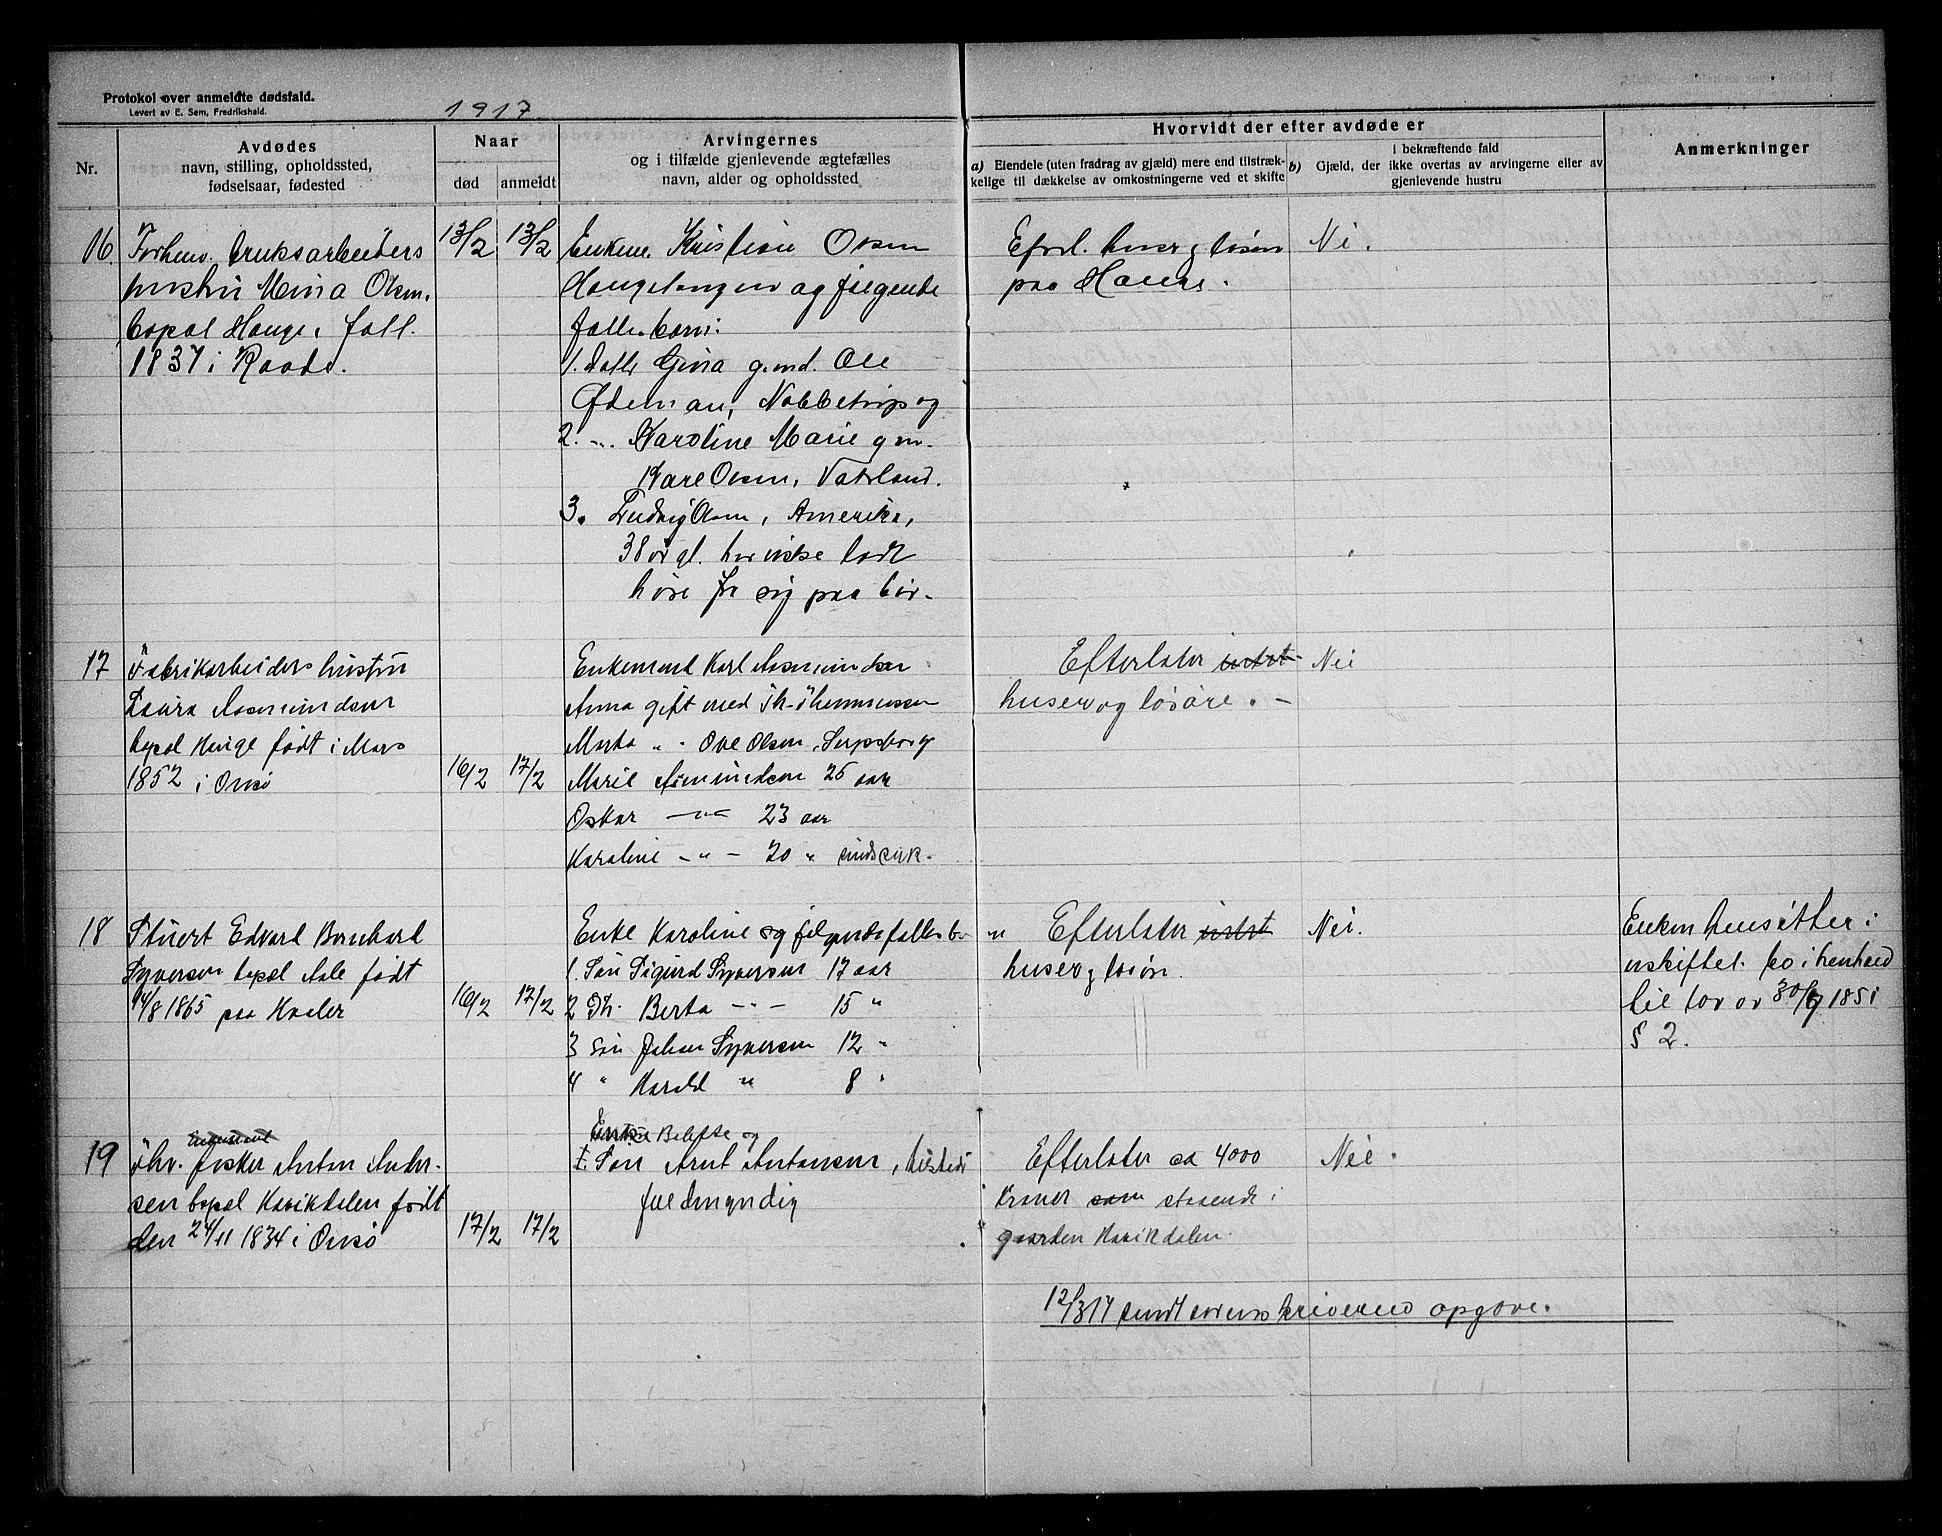 Protokol over anmeldte dødsfald.
Levert av E. Sem, Fredrikshald.
1917
Nr.
Avdødes
navn, stilling, opholdssted,
fødselsaar, fødested
Naar
død
anmeldt
Arvingernes
og i tilfælde gjenlevende ægtefælles
navn, alder og opholdssted
Hvorvidt der efter avdøde er
a) Eiendele (uten fradrag av gjæld) mere end tilstræk-
kelige til dækkelse av omkostningerne ved et skifte
b) Gjæld, der i bekræftende fald
ikke overtas av arvingerne eller av
gjenlevende hustru
Anmerkninger
16.
Forhenv. bruksarbeiders
hustru Mina Olsen,
bopæl Hauge, født
1837 i Raade.
13/2
13/2
Enkem. Kristian Olsen
Haugetangen og følgende
fælles barn:
1. Datter Gina g. m. Ole
Ødeman, Nabbetorp og
2. -"- Karoline Marie g m.
Karl Olsen, Vaterland.
3. Ludvig Olsen, Amerika,
38 år gl. har ikke ladt
høre fra sig paa
Efterl. huser og løsøre
paa Hauge.
Nei.
17
Fabrikarbeiders hustru
Laura Aasmundsen
bopæl Hauge født i Mars
1852 i Onsø
16/2
17/2
Enkemand Karl Aasmundsen
Anna gift med Th.
Marta " - Ole Olsen, Sarpsborg
Marie Asmundsen 25 aar
Oskar -"- 23 aar
Karoline -"- 20 " sindssyk.
Efterlater intet
huser og løsøre. -
Nei
18
Stuert Edvard Bernhard
Syversen bopæl Aale født
14/8 1865 paa Hvaler
16/2
17/2
Enke Karoline og følgende fælles børn
1. Søn Sigurd Syversen 17 aar
2 Dt. Berta -"- 15 "
3 Søn Johan Syversen 12 "
4 " Harald " 8 "
Efterlater intet
huser og løsøre.
Nei.
Enken hensitter i
uskiftet bo i henhold
til lov av 30/7 1851
§ 2.
19
Enkemand
fhv. fisker Anton Ander-
sen bopæl Kavikdalen født
den 24/11 1834 i Onsø
17/2
17/2
Enke og
1. Søn Arnt Antonsen, tilstede
fuldmyndig
Efterlater ca 4000
kroner som staaende i
gaarden Kavikdalen.
Nei.
12/3 17 sendt sorenskriveren opgave.